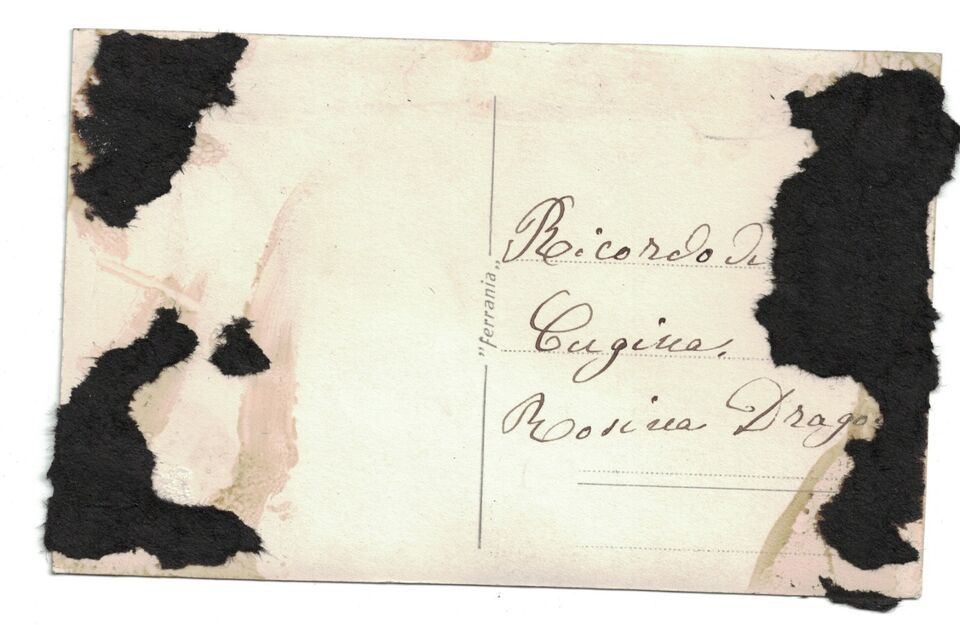 „ferrania”
Ricordo di
Cugina.
Rosina Drago